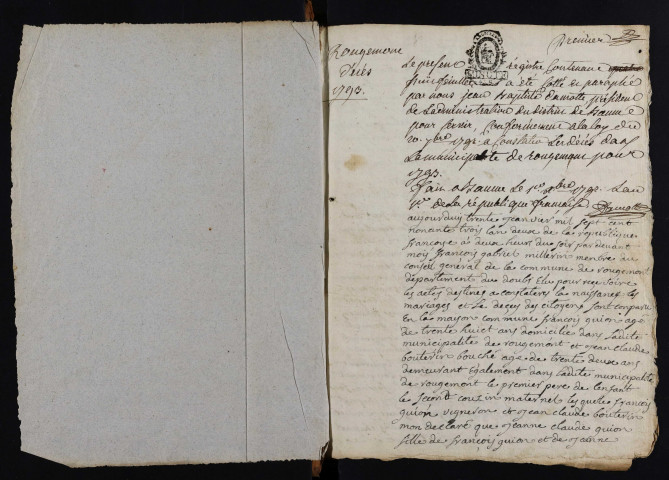 Premier
Rougemont
Décès
1793.
Le present registre contenant
feuillets a été cotté et paraphé
par nous jean baptiste Damotte président
de L'administration du district de Baume
pour servir, Conformément a la loy du
20. 7bre 1792. a Constater Les décès dans
La municipalité de rougemont pour
1793.
Fait a Baume Le 1er Xbre 1792. L'an
1er de la république française Damotte
aujourduy trente jeanvier mil sept cent
nonente trois lan deux de la republique
francoise à deux heurs du soir par devant
moy françois gabriel millerin membre du
conseil général de la commune de rougemont
département du doubs Elu pour
les actes destines a constaters la naissance les
mariages et Le deces des citoyens sont comparu
En la maison commune françois quion agé
de trente huict ans domicilié dans ladite
municipalité de rougemont et jean claude
bouterin bouché age de trente deux ans
demeurant également dans ladite municipalité
de rougemont le premier pere de lenfant
le second couzin maternel les quels françois
quion vigneron et jean claude bouterin
mon déclaré que jeanne claude quion
fille de françois quion et de jeanne